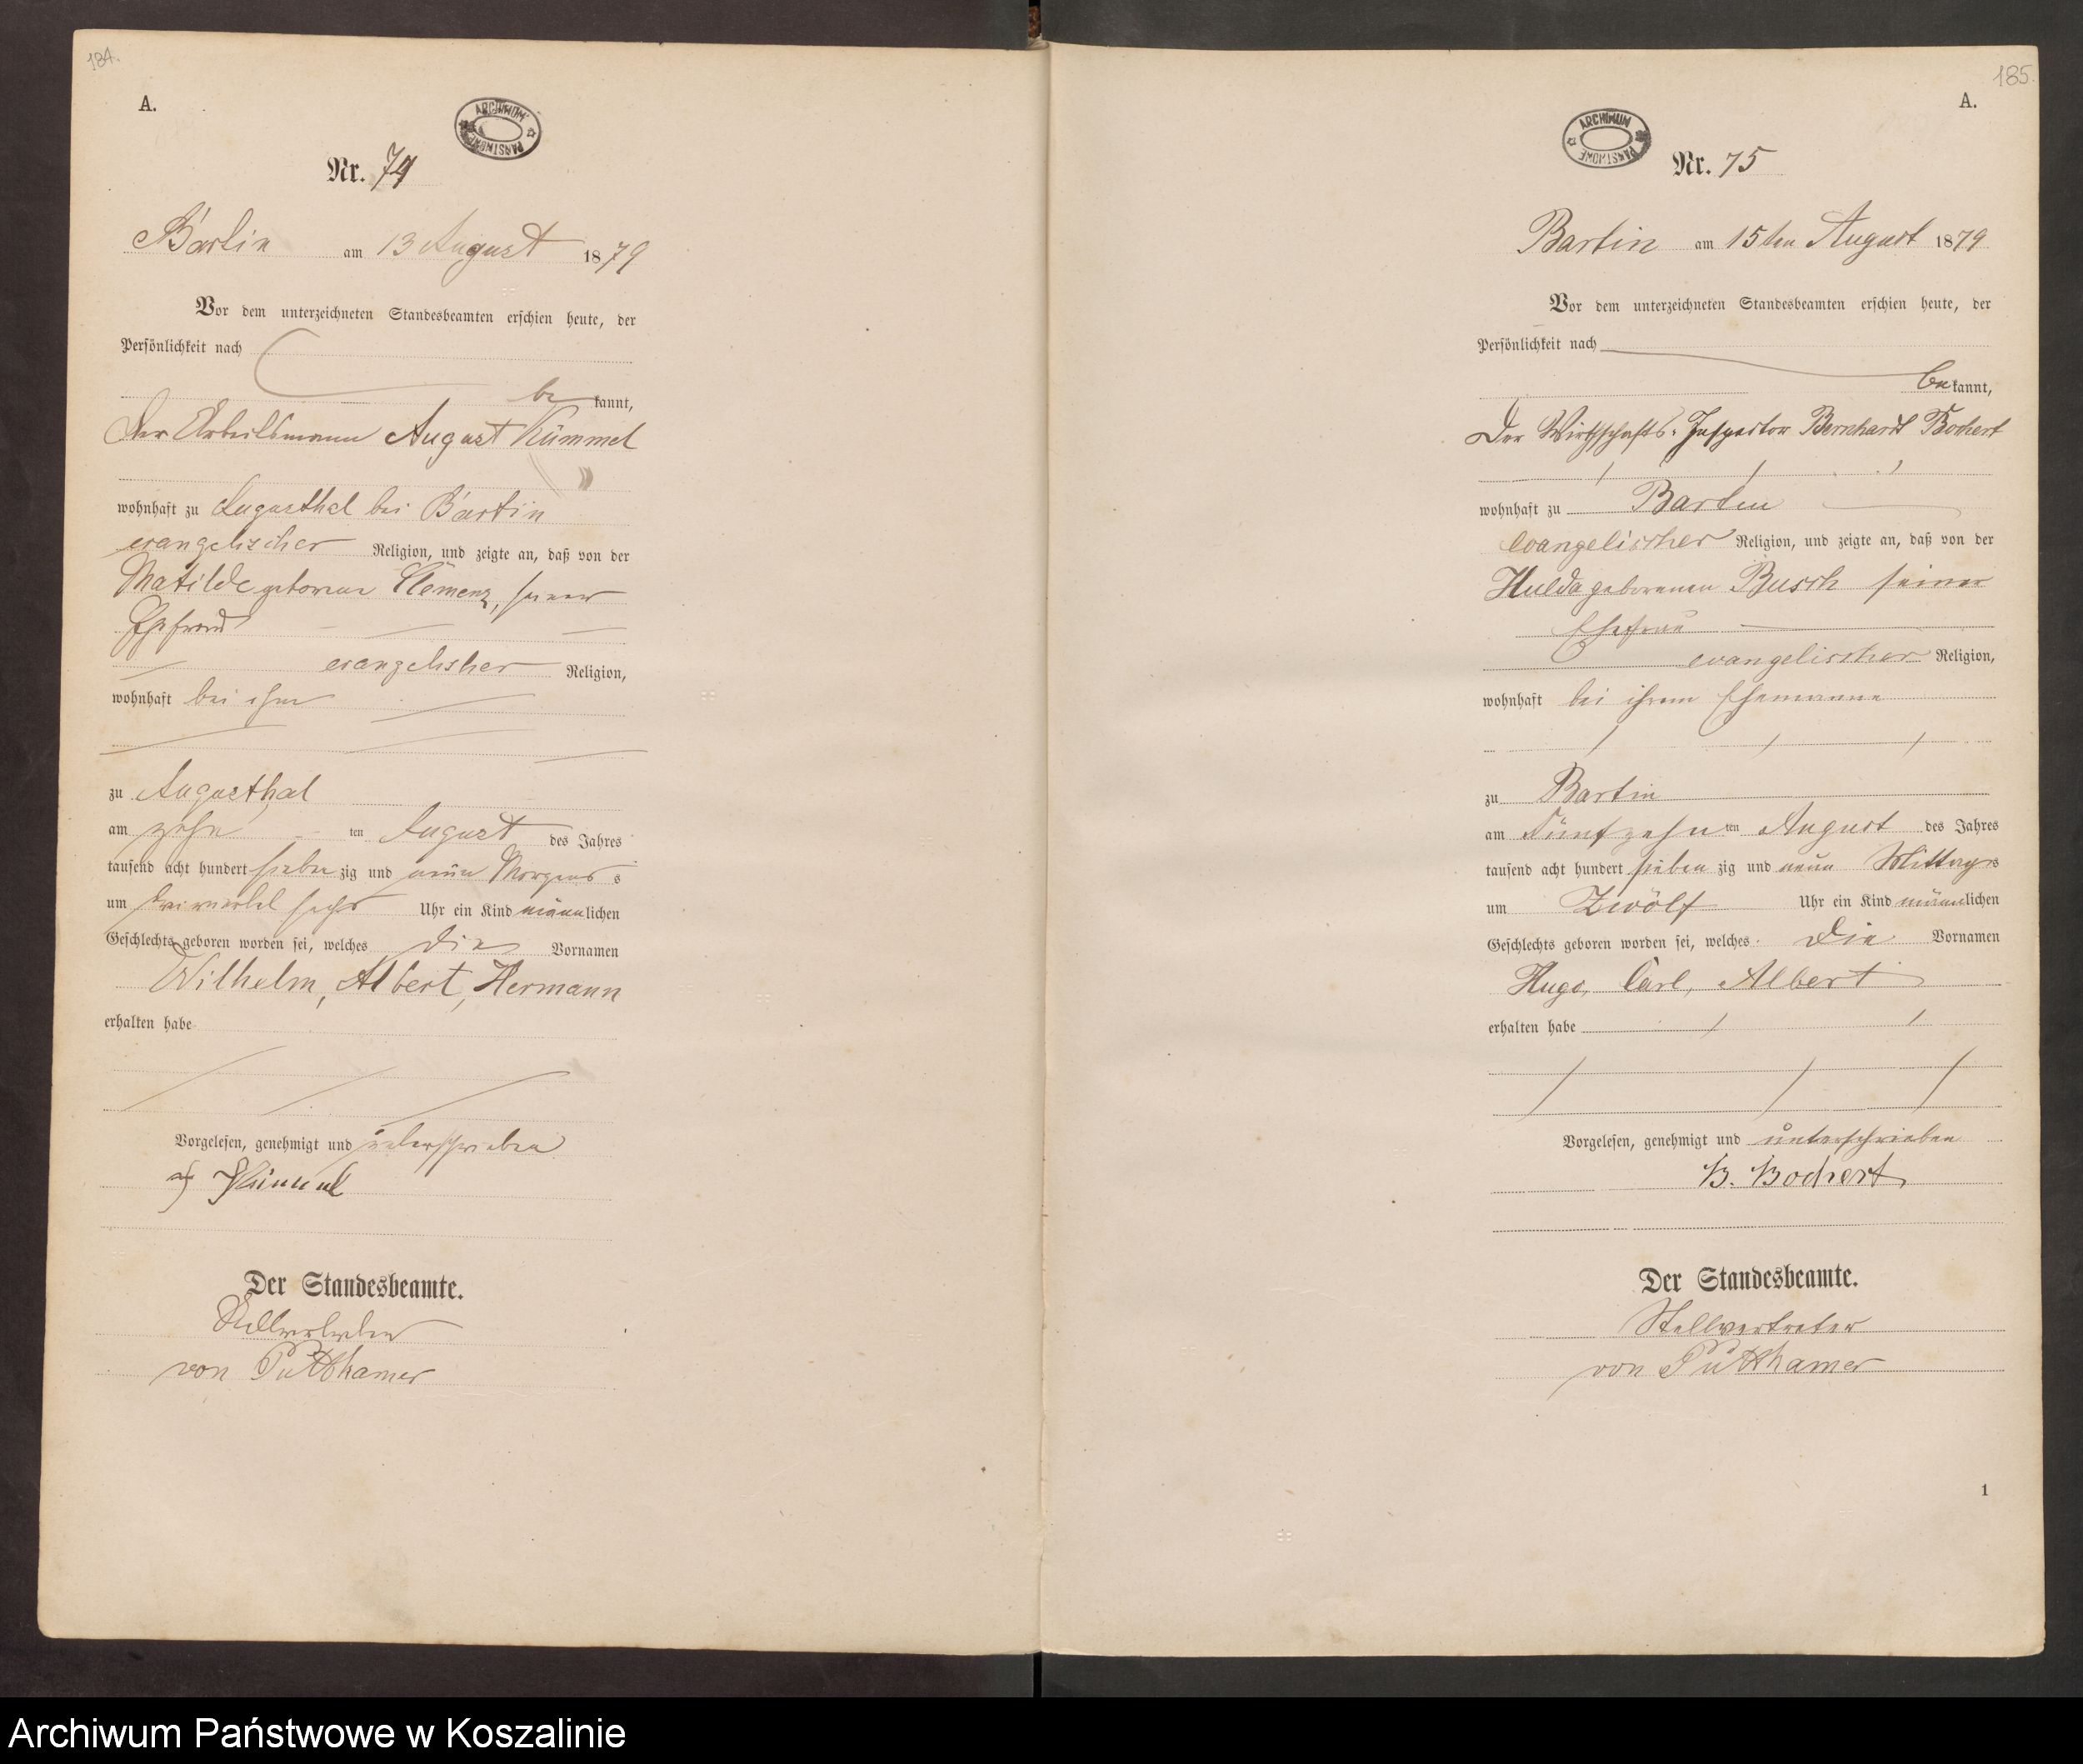 184.
A.
ARCHIWUM PAŃSTWOWE
Nr. 74
Bartin am 13 August 1879
Vor dem unterzeichneten Standesbeamten erschien heute, der
Persönlichkeit nach
be kannt,
Der Arbeitsmann August Kümmel
wohnhaft zu Augusthal bei Bartin
evangelischer Religion, und zeigte an, daß von der
Matilde geborene Clemenz, seiner
Ehefrau
evangelisher Religion,
wohnhaft bei ihm
zu Augusthal
am zehn ten August des Jahres
tausend acht hundert sieben zig und neun Morgens s
um dreiviertel sechs Uhr ein Kind männlichen
Geschlechts geboren worden sei, welches die Vornamen
Wilhelm, Albert, Hermann
erhalten habe
Vorgelesen, genehmigt und unterschrieben
Kümmel
Der Standesbeamte.
Stellvertreter
von Puttkamer
185.
A.
ARCHIWUM PAŃSTWOWE
Nr. 75
Bartin am 15ten August 1879
Vor dem unterzeichneten Standesbeamten erschien heute, der
Persönlichkeit nach
be kannt,
Der Wirthschafts-Inspector Bernhardt Bochert
wohnhaft zu Bartin
evangelischer Religion, und zeigte an, daß von der
Hulda geborenen Busch seiner
Ehefrau
evangelischer Religion,
wohnhaft bei ihrem Ehemanne
zu Bartin
am Fünfzehn ten August des Jahres
tausend acht hundert sieben zig und neun Mittags
um Zwölf Uhr ein Kind männlichen
Geschlechts geboren worden sei, welches die Vornamen
Hugo, Carl, Albert
erhalten habe
Vorgelesen, genehmigt und unterschrieben
B. Bochert
Der Standesbeamte.
Stellvertreter
von Puttkamer
1
Archiwum Państwowe w Koszalinie